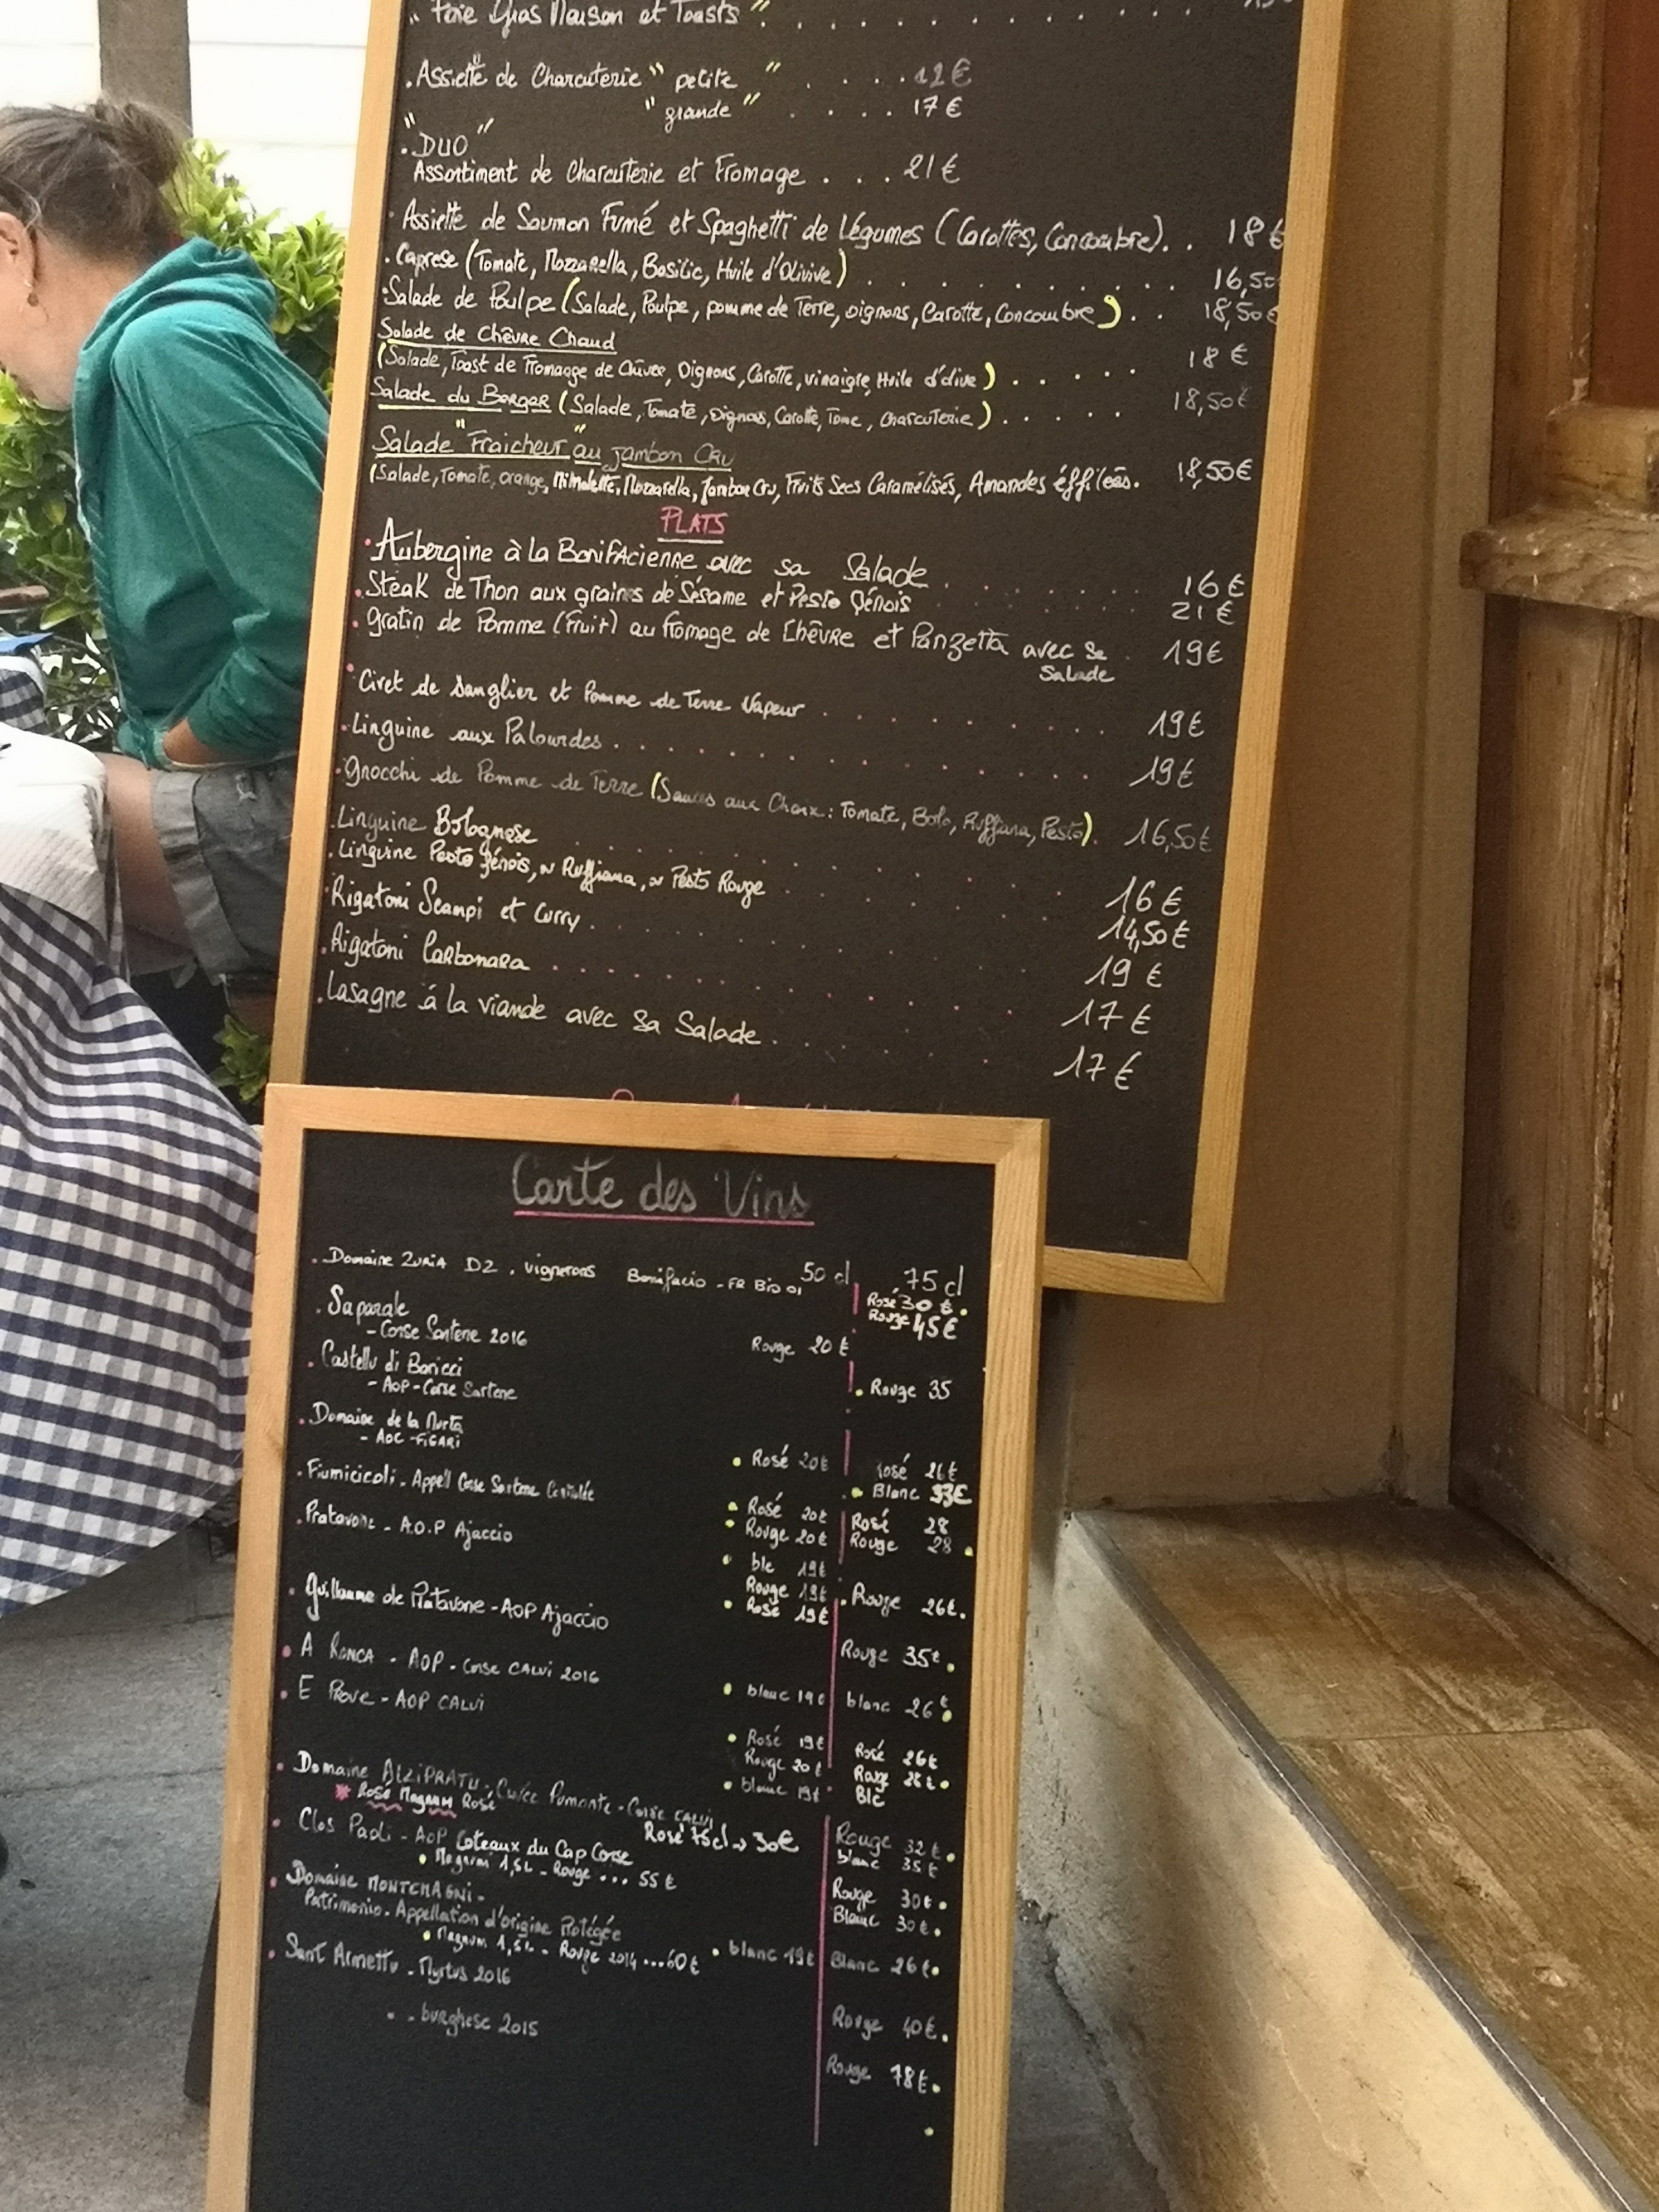 " Foie Gras Maison et Toasts " . . . . . . . . . .
. Assiette de Charcuterie " petite " . . . . 12 €
" grande " . . . . 17 €
. "DUO"
Assortiment de Charcuterie et Fromage . . . 21 €
. Assiette de Saumon Fumé et Spaghetti de Légumes (Carottes, Concombre). . 18 €
. Caprese (Tomate, Mozzarella, Basilic, Huile d'Olivive) . . . . . . . . . . 16,50
. Salade de Poulpe (Salade, Poulpe, pomme de Terre, oignons, Carotte, Concombre) . . 18,50 €
Salade de Chèvre Chaud
(Salade, Toast de Fromage de Chèvre, Oignons, Carotte, vinaigre, Huile d'olive) . . . . . 18 €
Salade du Berger (Salade, Tomate, Oignons, Carotte, Tome, Charcuterie) . . . . . 18,50 €
Salade "Fraicheur" au jambon Cru
(Salade, Tomate, orange, Mimolette, Mozzarella, Jambon Cru, Fruits Secs Caramélisés, Amandes éffilées. 18,50 €
PLATS
. Aubergine à la Bonifacienne avec sa Salade . . . . . . . 16 €
. Steak de Thon aux graines de Sésame et Pesto Génois . . . . . . . 21 €
. Gratin de Pomme (Fruit) au fromage de Chèvre et Panzetta avec sa . 19 €
Salade
. Civet de Sanglier et Pomme de Terre Vapeur . . . . . . . . . 19 €
. Linguine aux Palourdes . . . . . . . . . . . . . 19 €
. Gnocchi de Pomme de Terre (Sauces aux Choix : Tomate, Bolo, Ruffiana, Pesto). 16,50 €
. Linguine Bolognese . . . . . . . . . . . . 16 €
. Linguine Pesto Génois, ou Ruffiana, ou Pesto Rouge . . . . . . . 14,50 €
. Rigatoni Scampi et Curry . . . . . . . . . . . . 19 €
. Rigatoni Carbonara . . . . . . . . . . . . 17 €
. Lasagne à la viande avec sa Salade . . . . . . . 17 €
Carte des Vins
. Domaine Zuria DZ . vignerons Bonifacio - FR Bio 01 50 cl 75 cl
Rosé 30 € .
Rouge 45 €
. Saparale
- Corse Sartene 2016 Rouge 20 €
. Castellu di Baricci . Rouge 35
- AOP - Corse Sartene
. Domaine de la Murta
- AOC - FiGARi . Rosé 20 € Rosé 26 €
. Blanc 33 €
. Fiumicicoli - Appell Corse Sartene
. Rosé 20 € Rosé 28
. Rouge 20 € Rouge 28 .
. Pratavone - A.O.P Ajaccio
. blc 19 €
Rouge 19 € . Rouge 26 € .
. Rosé 19 €
. Guillaume de Pratavone - AOP Ajaccio Rouge 35 € .
. A RONCA - AOP - Corse CALVi 2016 . blanc 19 € blanc 26 € .
. E PROVE - AOP CALVi
. Rosé 19 € Rosé 26 €
Rouge 20 € Rouge 28 € .
. blanc 19 € . Blc
. Domaine ALZiPRATU - Cuvée Pumonte - Corse CALVi
* Rosé Magnum Rosé Rosé 75 cl → 30 € Rouge 32 € .
blanc 35 €
. Clos Paoli - AOP Coteaux du Cap Corse Rouge 30 € .
. Magnum 1,5L - Rouge ... 55 € Blanc 30 € .
. Domaine MONTEMAGNi -
Patrimonio - Appellation d'origine Protégée . blanc 19 € Blanc 26 € .
. Magnum 1,5L - Rouge 2014 ... 60 €
. Sant Armettu - Myrtus 2016 Rouge 40 € .
" - burghese 2015 Rouge 78 € .